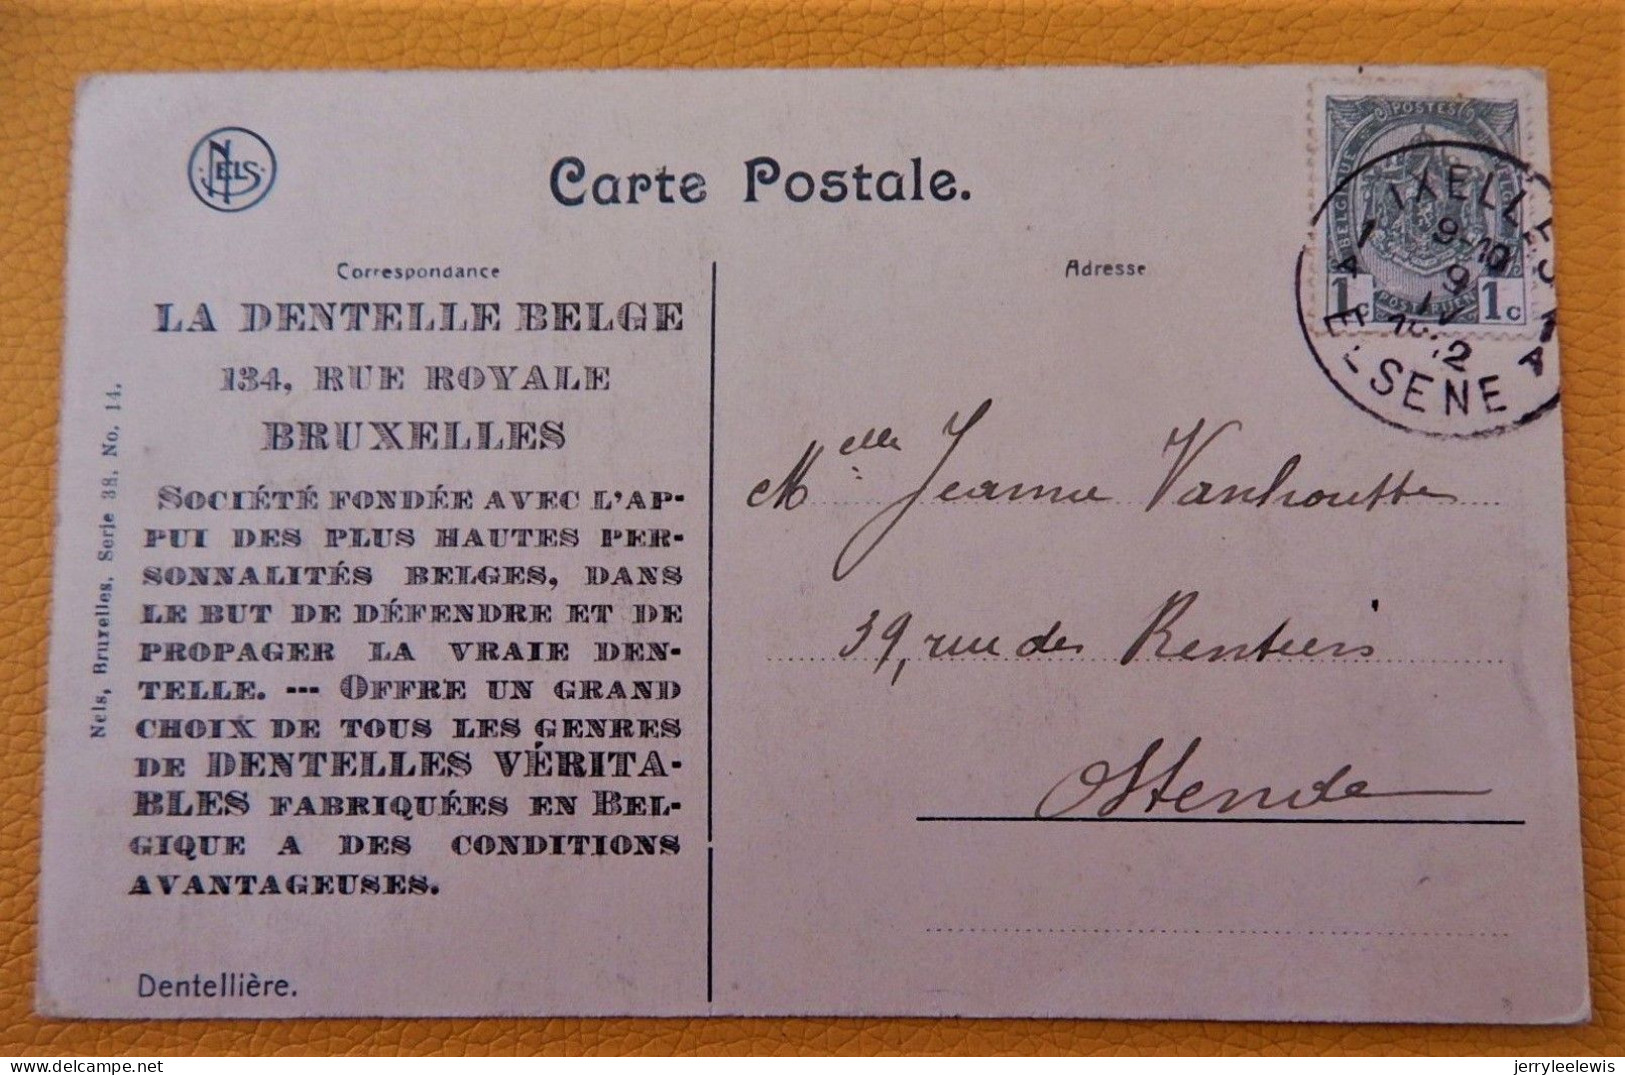 NELS
Carte Postale.
Correspondance
LA DENTELLE BELGE
134, RUE ROYALE
BRUXELLES
SOCIÉTÉ FONDÉE AVEC L'AP-
PUI DES PLUS HAUTES PER-
SONNALITÉS BELGES, DANS
LE BUT DE DÉFENDRE ET DE
PROPAGER LA VRAIE DEN-
TELLE. --- OFFRE UN GRAND
CHOIX DE TOUS LES GENRES
DE DENTELLES VÉRITA-
BLES FABRIQUÉES EN BEL-
GIQUE A DES CONDITIONS
AVANTAGEUSES.
Dentellière.
Nels, Bruxelles. Serje 38. No. 14.
Adresse
POSTES
BELGIQUE
POSTERIJEN
1c 1c
IXELLES
1 9-10 1
9
IV
A A
ELSENE
Melle Jeanne Vanhoutte
39, rue des Rentiers
Ostende
jerryleelewis